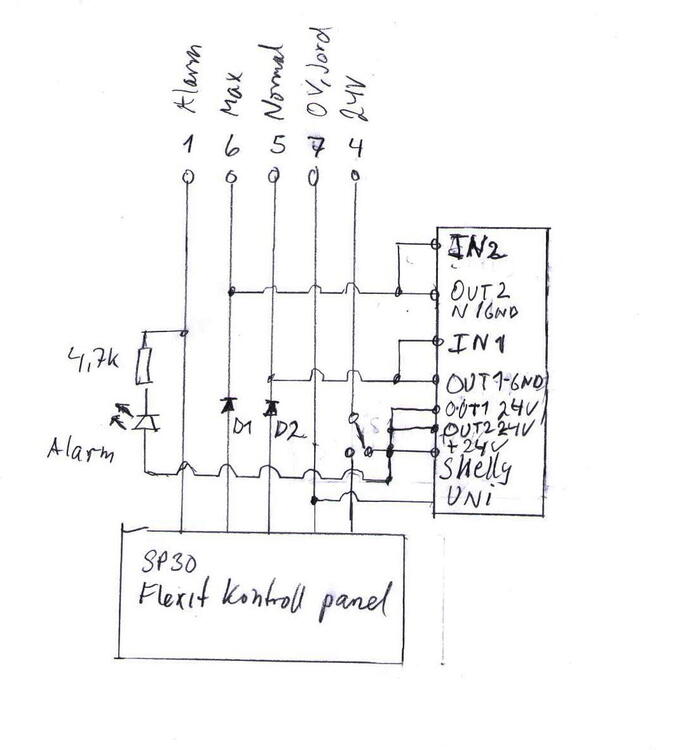 Alarm
Max
Normal
0V, Jord
24V
1 6 5 7 4
IN2
OUT2
N/GND
IN1
OUT1-GND
OUT1 24V
OUT2 24V
+24V
Shelly
UNi
4,7k
Alarm
D1
D2
S
SP30
Flexit Kontroll panel